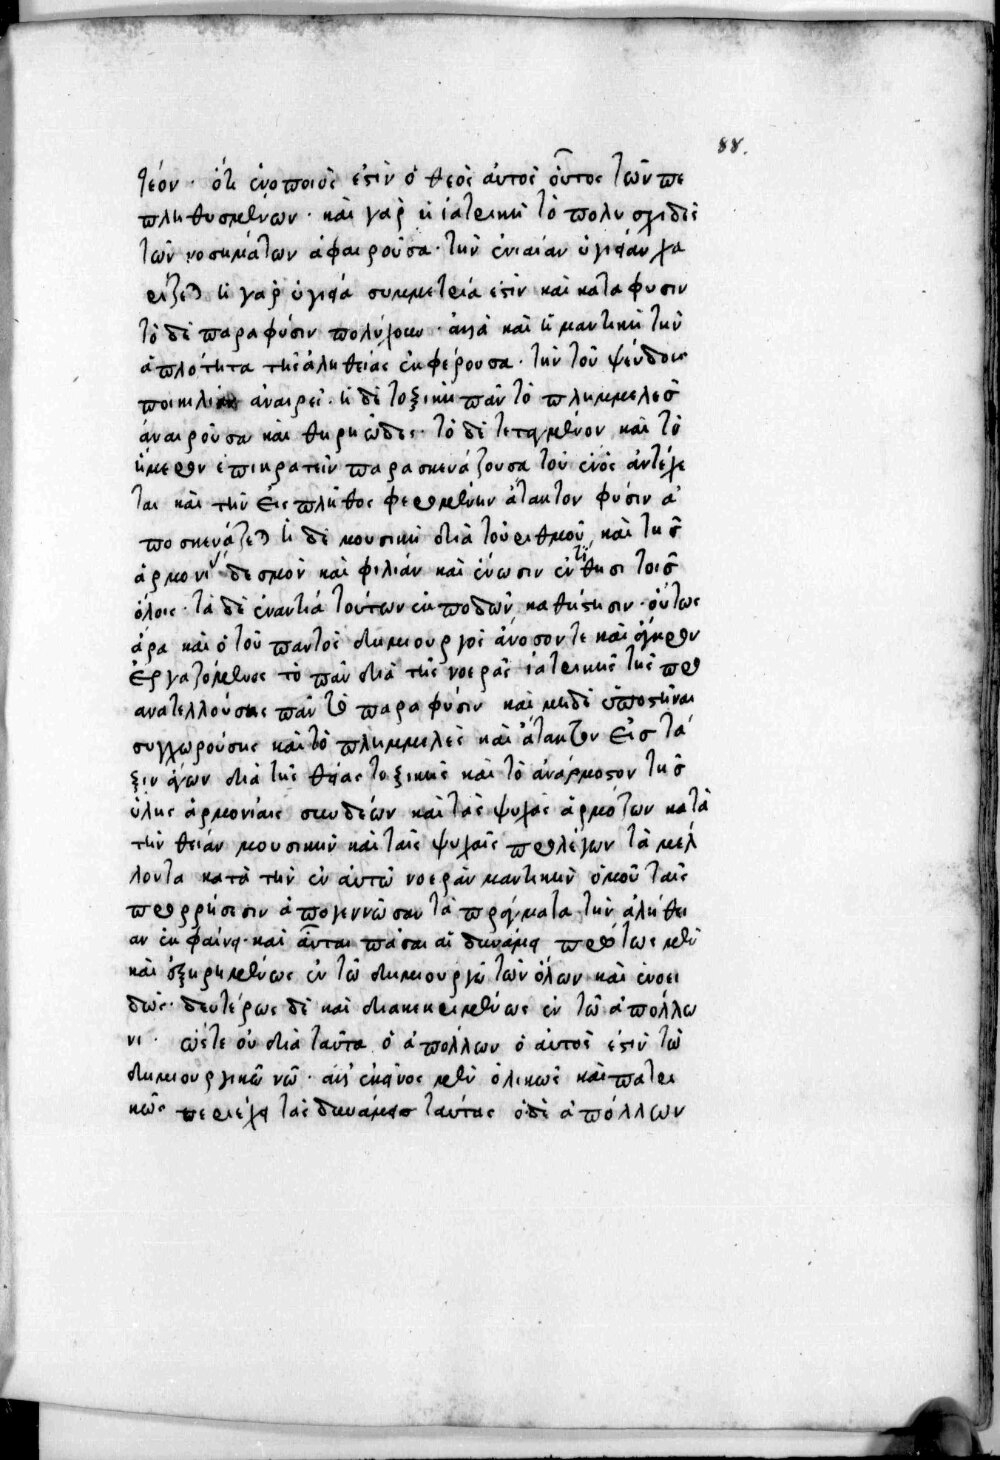 88.
τέον· ὅτι ἑνοποιός ἐστιν ὁ θεὸς αὐτὸς οὗτος τῶν πε
πληθυσμένων· καὶ γὰρ ἡ ἰατρικὴ τὸ πολυσχιδὲς
τῶν νοσημάτων ἀφαιροῦσα· τὴν ἑνιαίαν ὑγιείαν χα
ρίζεται ἡ γὰρ ὑγιεία συμμετρία ἐστὶν καὶ κατα φύσιν
τὸ δὲ παρα φύσιν πολύχουν· ἀλλὰ καὶ ἡ μαντικὴ τὴν
ἁπλότητα τῆς ἀληθείας ἐκφέρουσα· τὴν τοῦ ψεύδους
ποικιλίαν ἀναιρεῖ· ἡ δὲ τοξικὴ πᾶν τὸ πλημμελὲς
ἀναιροῦσα καὶ θηριῶδες· τὸ δὲ τεταγμένον καὶ τὸ
ἥμερον ἐπικρατεῖν παρασκευάζουσα τοῦ ἑνὸς ἀντέχε
ται καὶ τὴν εἰς πλῆθος φερομένην ἄτακτον φύσιν ἀ
ποσκευάζεται ἡ δὲ μουσικὴ διὰ τοῦ ριθμοῦ, καὶ τῆς
ἁρμονί δεσμὸν καὶ φιλίαν καὶ ἕνωσιν ἐντίθησι τοῖς
ὅλοις· τὰ δὲ ἐναντία τούτων ἐκποδῶν καθίστησιν· οὕτως
ἄρα καὶ ὁ τοῦ παντὸς δημιουργὸς ἄνοσόν τε καὶ ἀγήρων
ἐργαζόμενος τὸ πᾶν διὰ τῆς νοερᾶς ἰατρικῆς τῆς προ
ανατελλούσης πᾶν τὸ παρα φύσιν καὶ μηδὲ ὑποστῆναι
συγχωρούσης καὶ τὸ πλημμελὲς καὶ ἄτακτον εἰς τά
ξιν ἄγων διὰ τῆς θείας τοξικῆς καὶ τὸ ἀνάρμοστον τῆς
ὕλης ἁρμονίαις συνδέων καὶ τὰς ψυχὰς ἁρμόζων κατὰ
τὴν θείαν μουσικὴν καὶ ταῖς ψυχαῖς προλέγων τὰ μέλ
λοντα κατὰ τὴν ἐν αὐτῷ νοερὰν μαντικὴν ὁμοῦ ταῖς
προρρήσεσιν ἀπογεννῶσαν τὰ πράγματα τὴν ἀλήθει
αν ἐκφαίνει· καὶ αὗται πᾶσαι αἱ δυνάμεις πρώτως μὲν
καὶ ἐξῃρημένως ἐν τῷ δημιουργῷ τῶν ὅλων καὶ ἑνοει
δῶς· δευτέρως δὲ καὶ διακεκριμένως ἐν τῷ ἀπόλλω
νι· ὥστε οὐ διὰ ταῦτα ὁ ἀπόλλων ὁ αὐτὸς ἐστὶν τῷ
δημιουργικῷ νῷ· ἀλλ' ἐκεῖνος μὲν ὁλικῶς καὶ πατρι
κῶς περιέχει τὰς δυνάμεις ταύτας ὁ δὲ ἀπόλλων